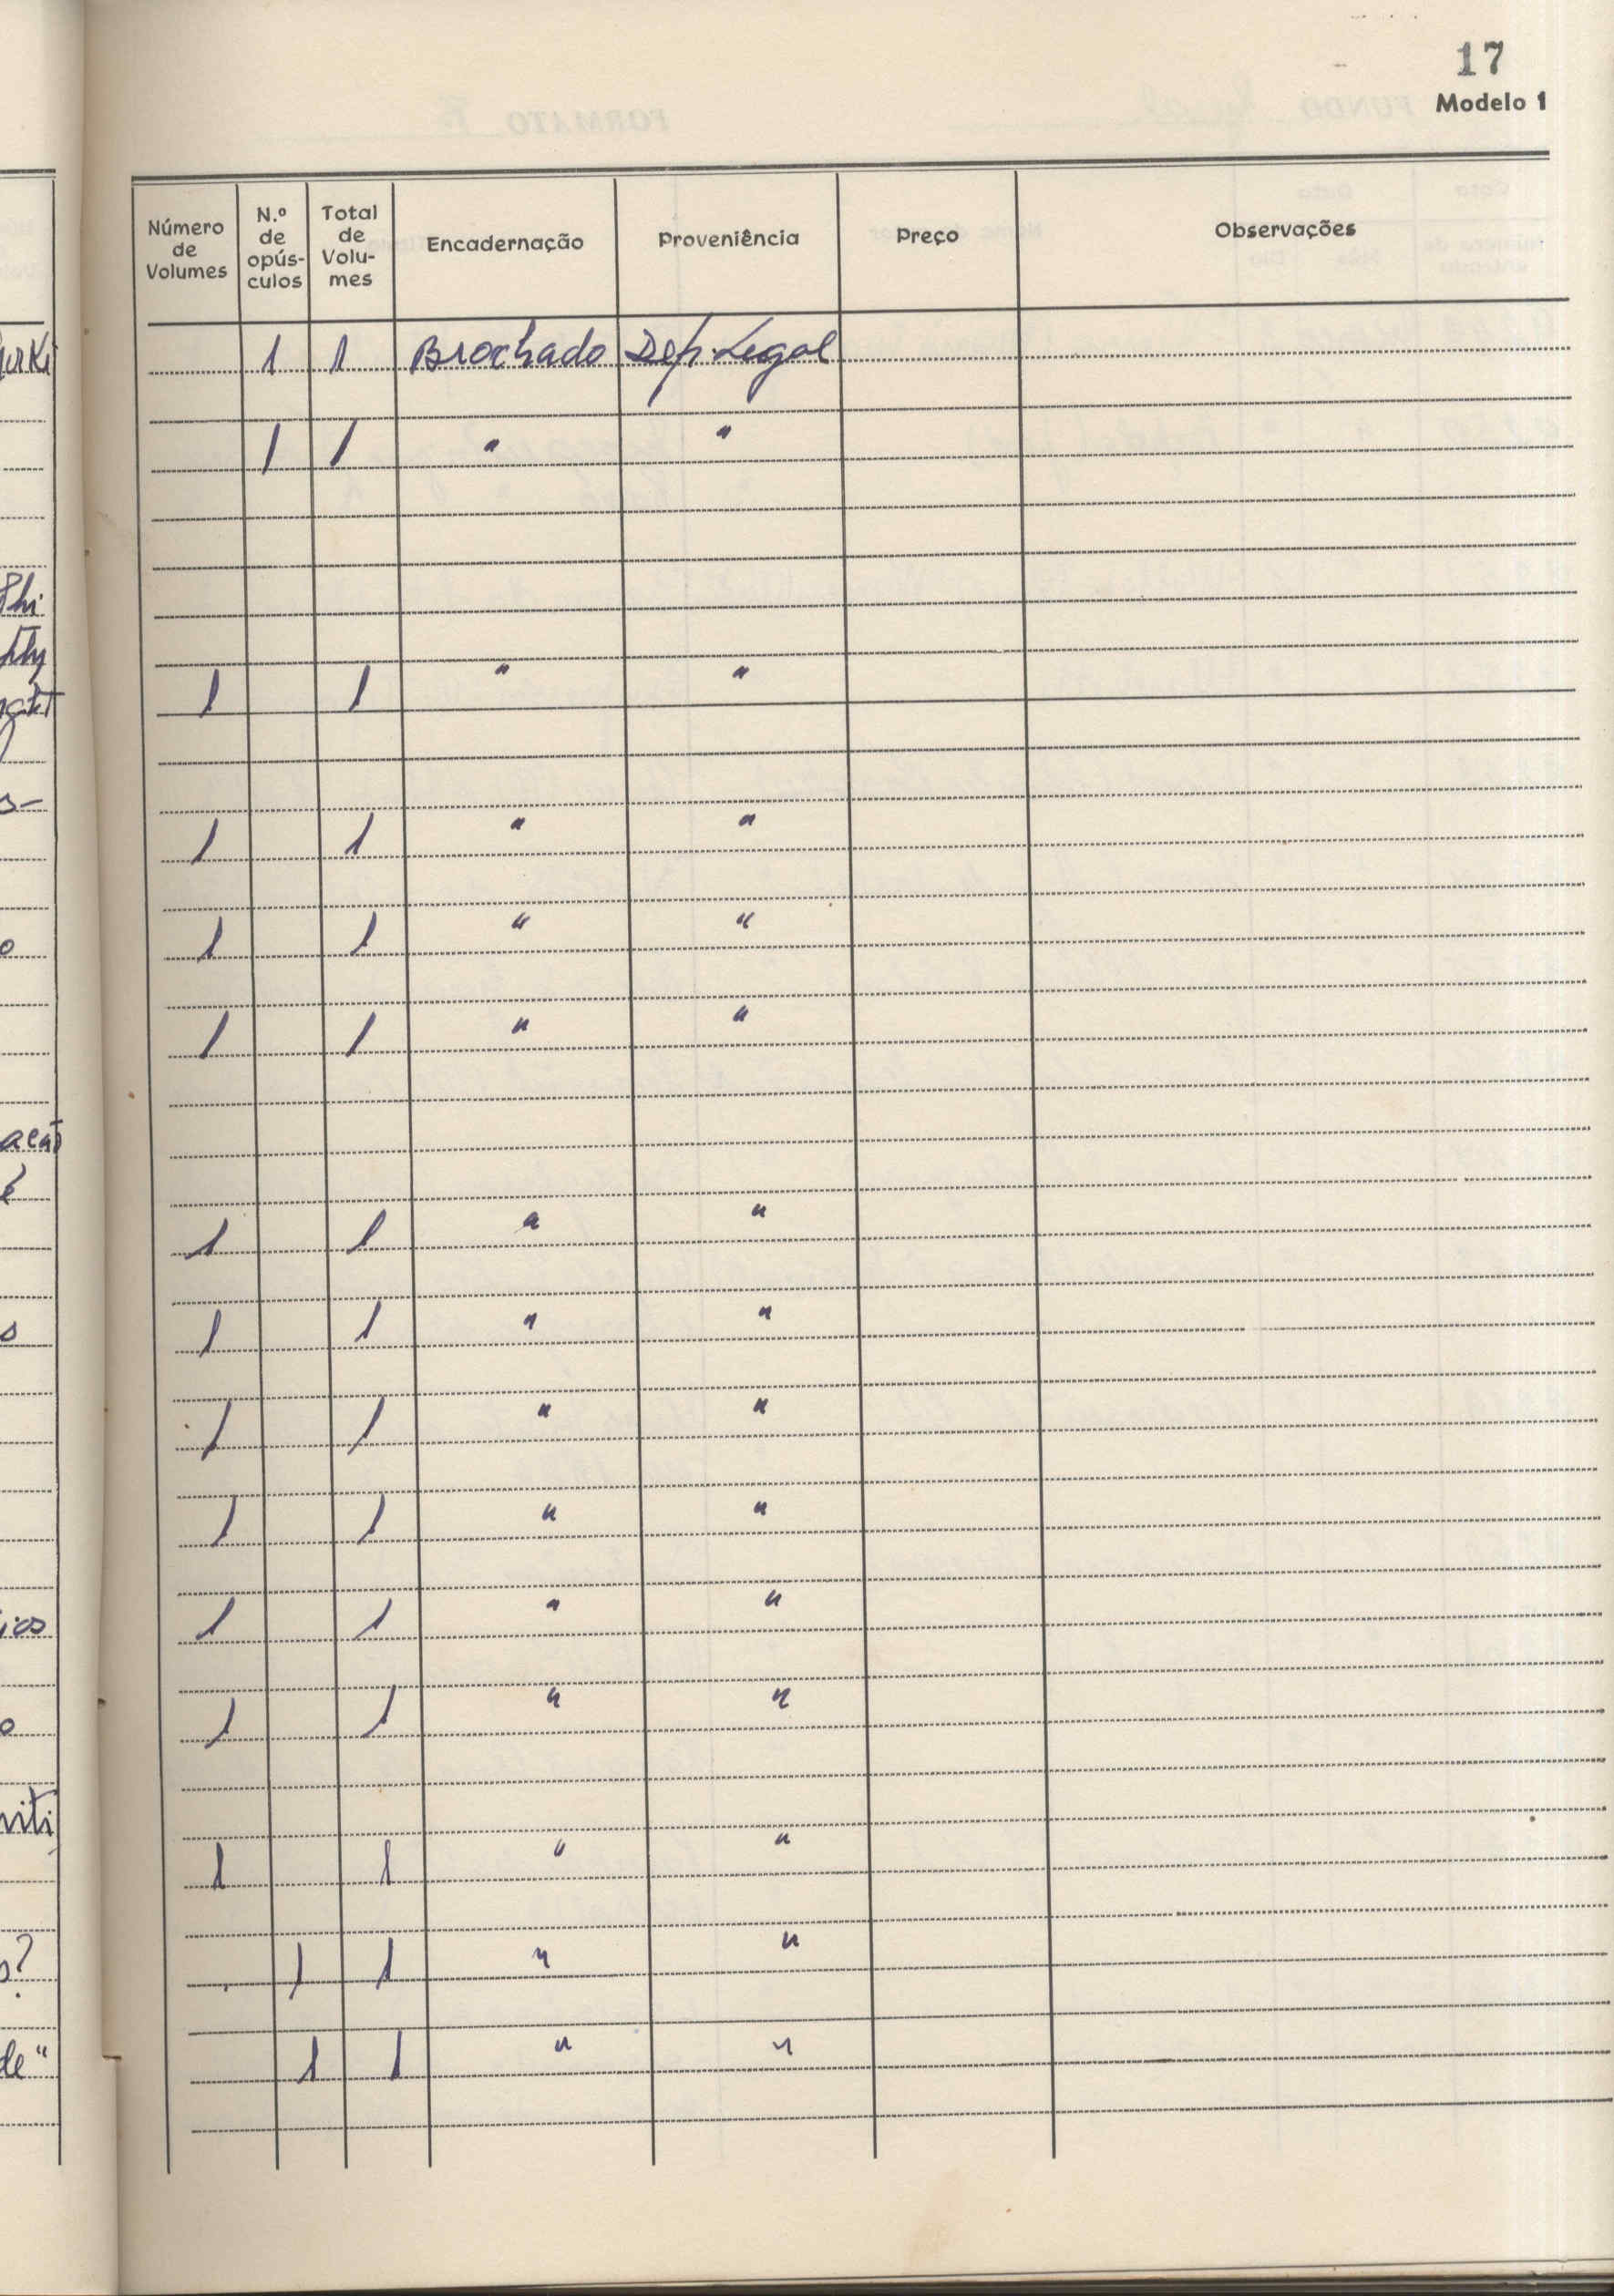 17
Modelo 1
Número de Volumes N.º de opús-culos Total de Volu-mes Encadernação Proveniência Preço Observações
1 1 Brochado Dep. Legal
1 1 " "
1 1 " "
1 1 " "
1 1 " "
1 1 " "
1 1 " "
1 1 " "
1 1 " "
1 1 " "
1 1 " "
1 1 " "
1 1 " "
1 1 " "
1 1 " "